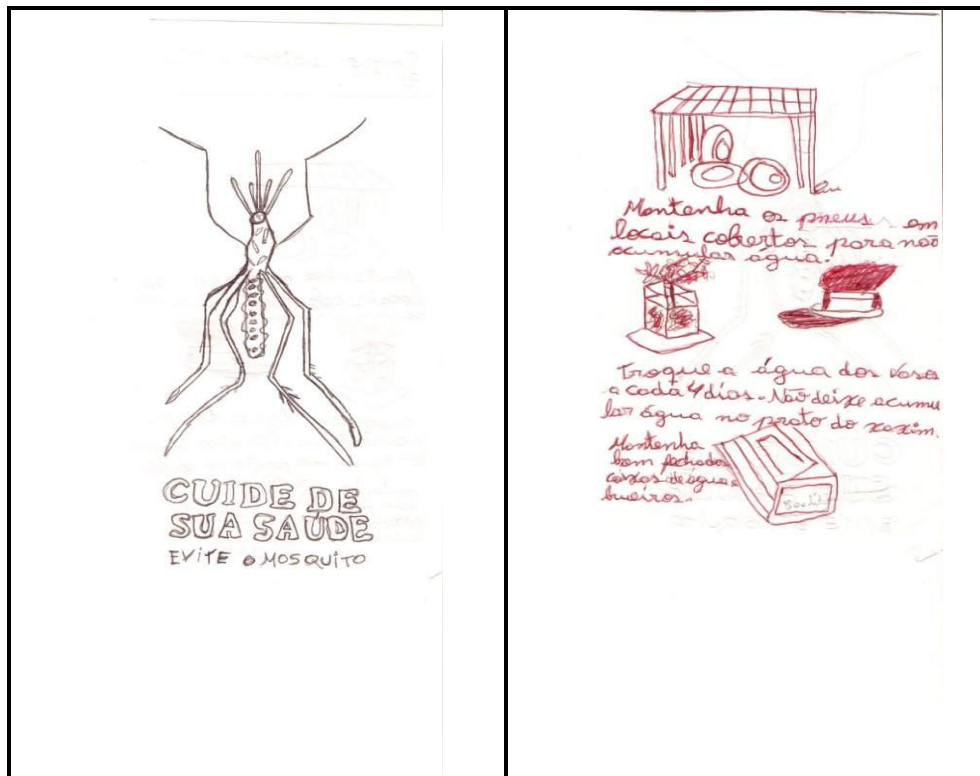 CUIDE DE
SUA SAÚDE
EVITE O MOSQUITO
Mantenha os pneus em
locais cobertos para não
acumular água.
Troque a água dos vasos
a cada 4 dias. Não deixe acumu
lar água no prato do xaxim.
Mantenha
bem fechados
caixas de água e
bueiros.